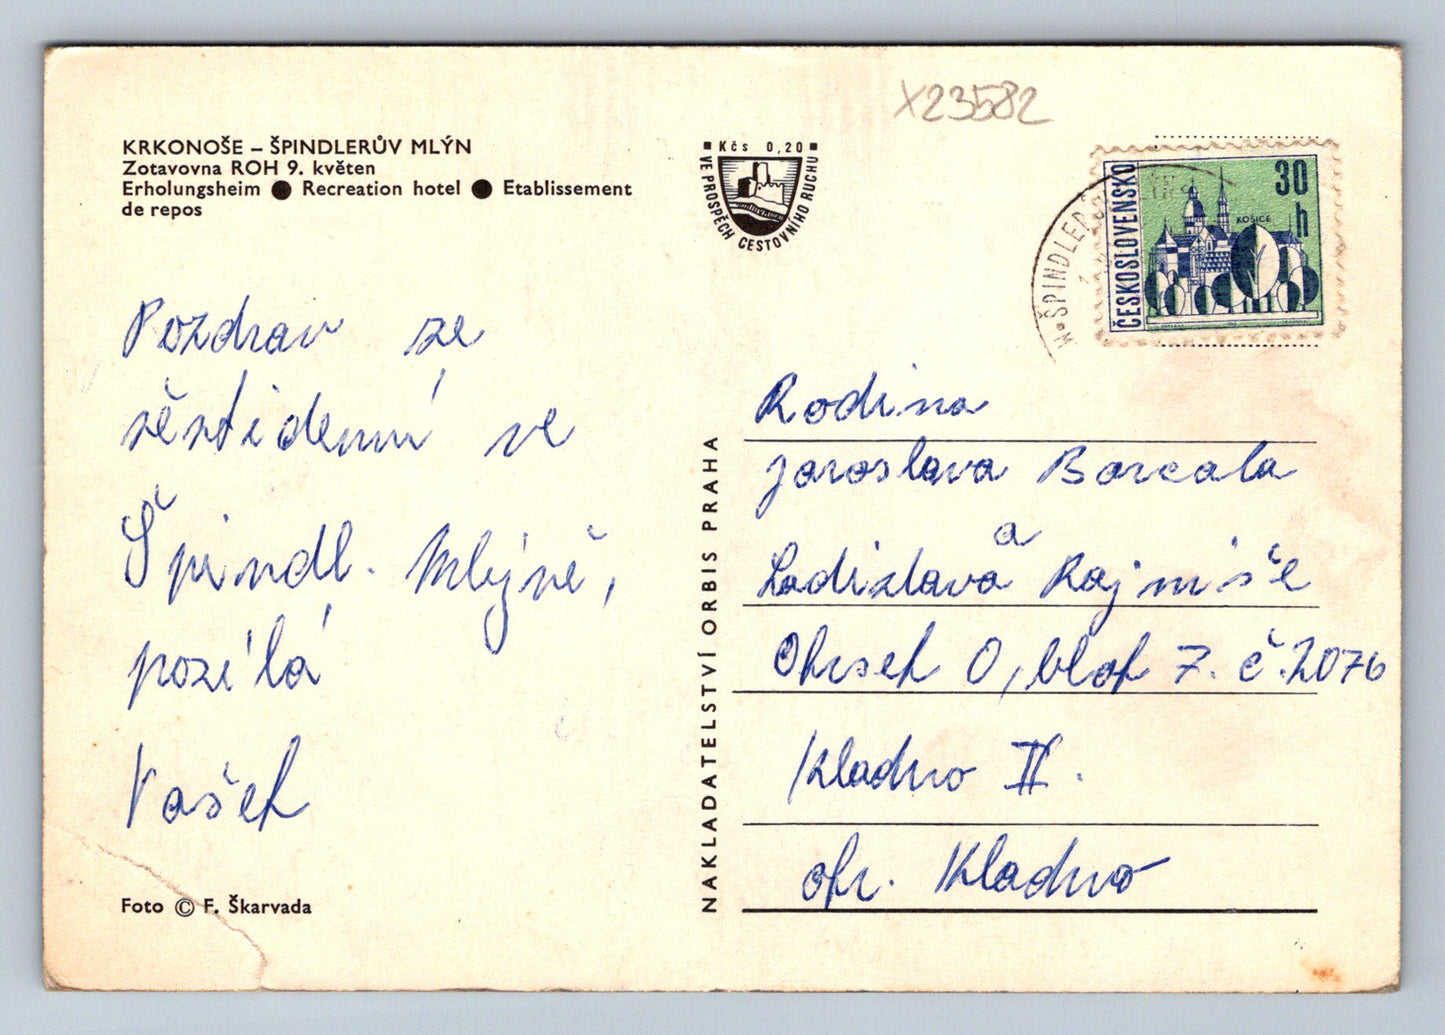 X23582
KRKONOŠE – ŠPINDLERŮV MLÝN
Zotavovna ROH 9. květen
Erholungsheim ● Recreation hotel ● Etablissement
de repos
Kčs 0,20
VE PROSPĚCH CESTOVNÍHO RUCHU
ČESKOSLOVENSKO
30
h
KOŠICE
Pozdrav ze
šěstidenní ve
Špindl. Mlýně,
posílá
Vašek
Foto © F. Škarvada
NAKLADATELSTVÍ ORBIS PRAHA
Rodina
Jaroslava Barcala
a
Ladislava Rajniše
Okrsek O, blok 7. č. 2076
Kladno II.
okr. Kladno